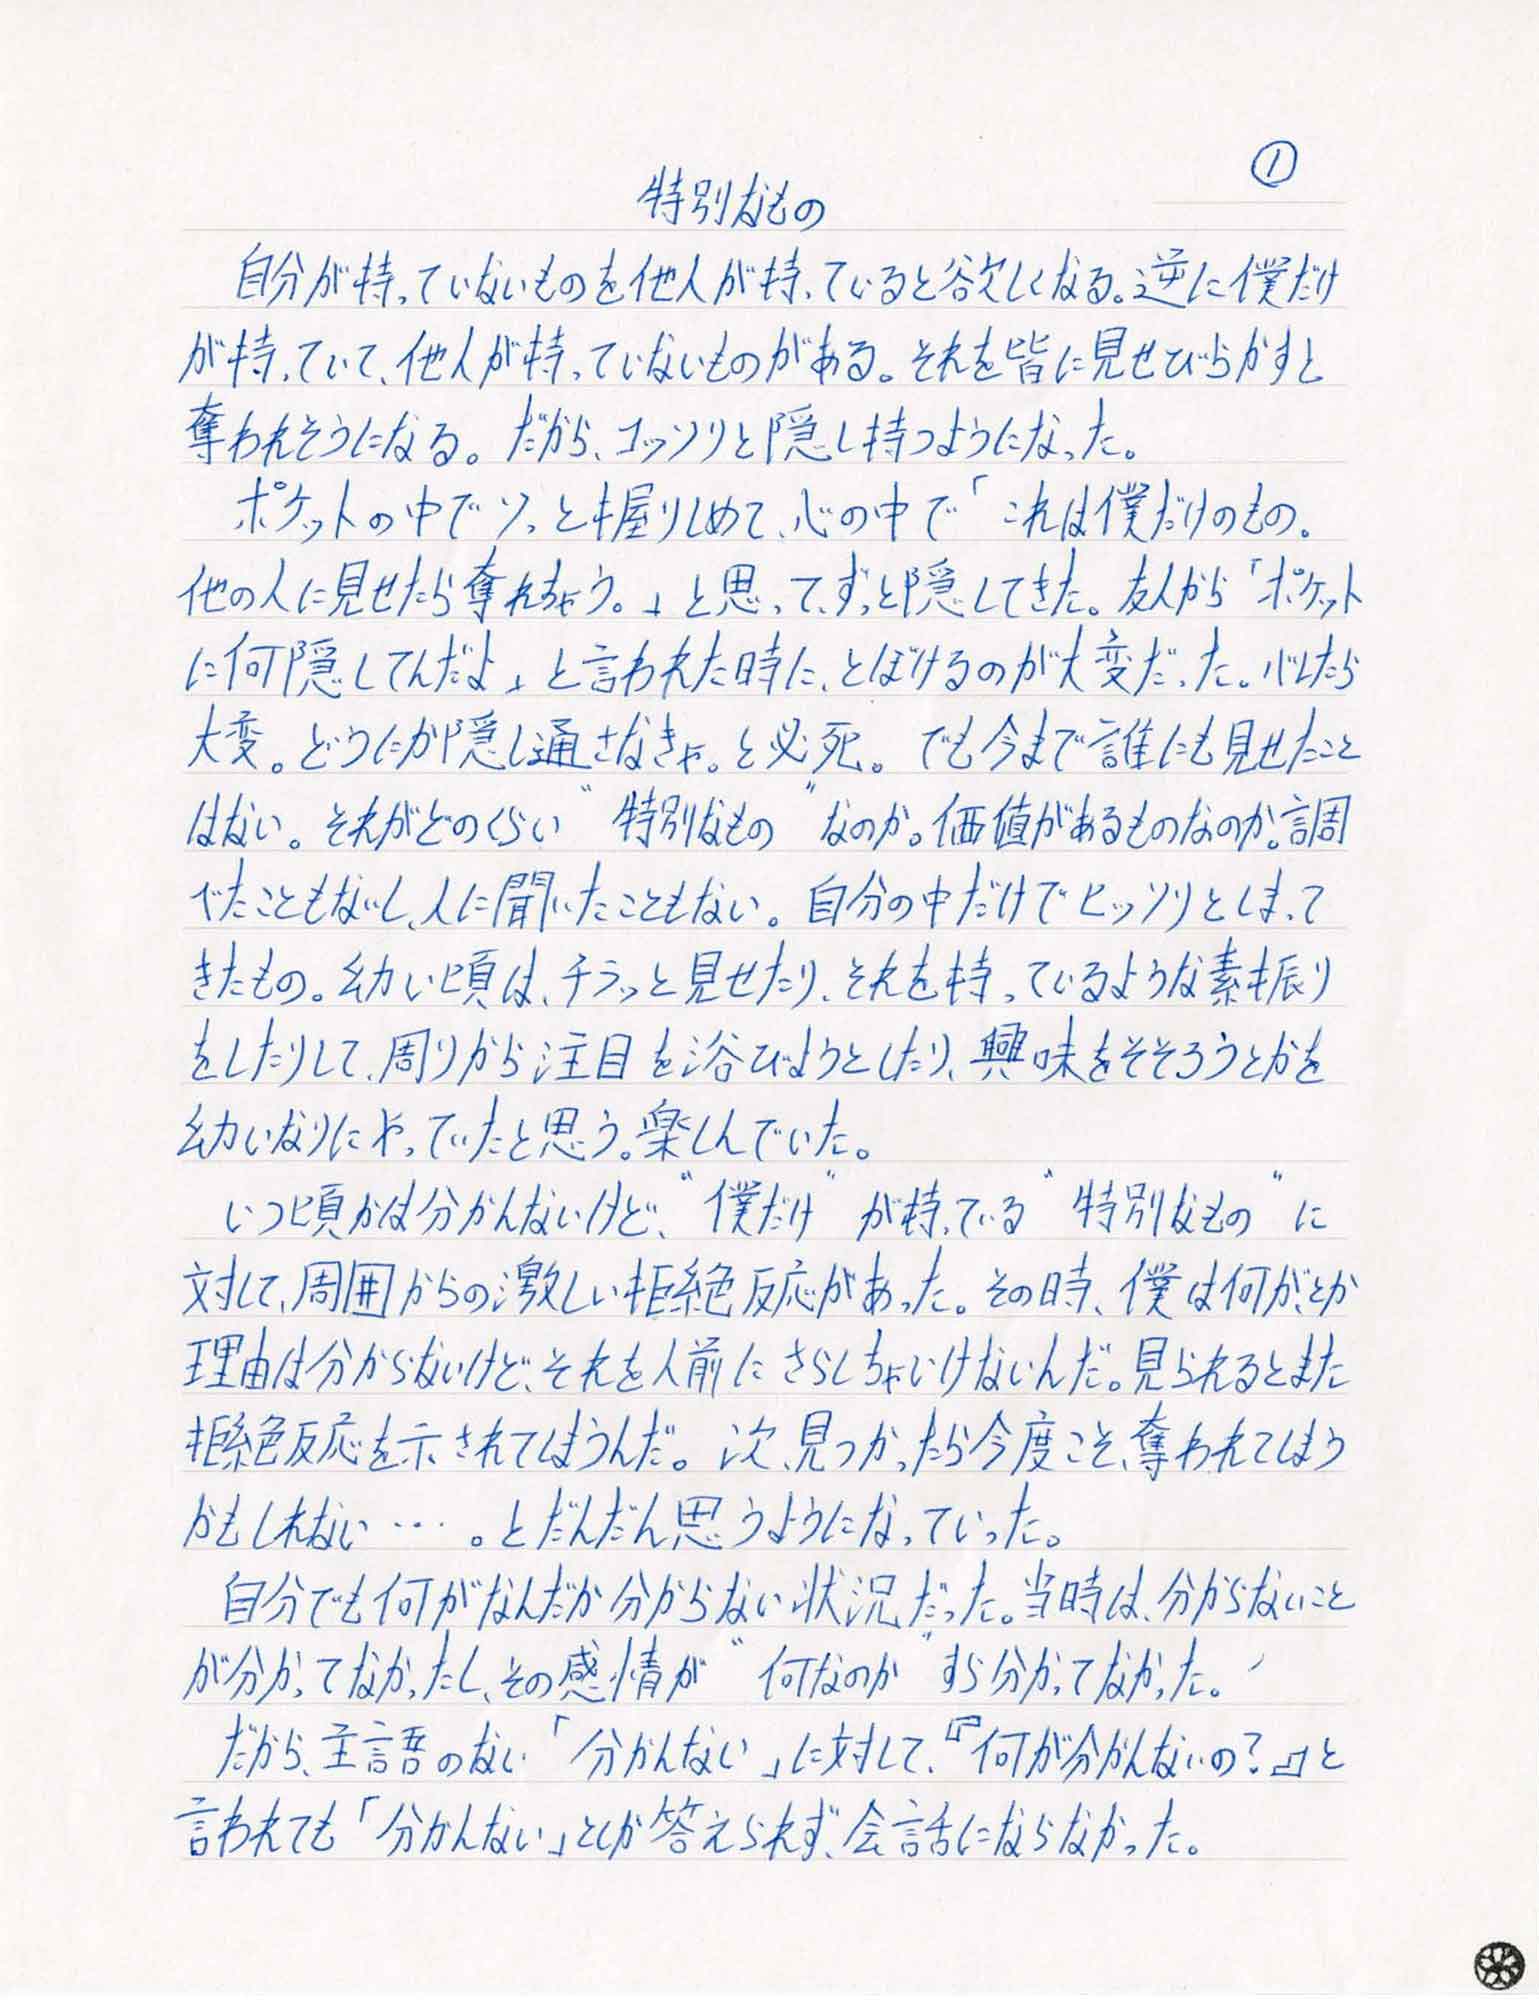 ①
特別なもの
自分が持っていないものを他人が持っていると欲しくなる。逆に僕だけ
が持っていて、他人が持っていないものがある。それを皆に見せびらかすと
奪われそうになる。だから、コッソリと隠し持つようになった。
ポケットの中でソっと握りしめて、心の中で「これは僕だけのもの。
他の人に見せたら奪れちゃう。」と思って、ずっと隠してきた。友人から「ポケット
に何隠してんだよ」と言われた時に、とぼけるのが大変だった。バレたら
大変。どうにか隠し通さなきゃ。と必死。でも今まで誰にも見せたこと
はない。それがどのくらい“特別なもの”なのか。価値があるものなのか。調
べたこともないし、人に聞いたこともない。自分の中だけでヒッソリとしまって
きたもの。幼い頃は、チラッと見せたり、それを持っているような素振り
をしたりして、周りから注目を浴びようとしたり、興味をそそろうとかを
幼いなりにやっていたと思う。楽しんでいた。
いつ頃かは分かんないけど、“僕だけ”が持っている“特別なもの”に
対して、周囲からの激しい拒絶反応があった。その時、僕は何が、とか
理由は分からないけど、それを人前にさらしちゃいけないんだ。見られるとまた
拒絶反応を示されてしまうんだ。次、見つかったら今度こそ、奪われてしまう
かもしれない…。とだんだん思うようになっていった。
自分でも何がなんだか分からない状況だった。当時は、分からないこと
が分かってなかったし、その感情が“何なのか”すら分かってなかった。
だから、主語のない「分かんない」に対して、『何が分かんないの？』と
言われても「分かんない」としか答えられず、会話にならなかった。